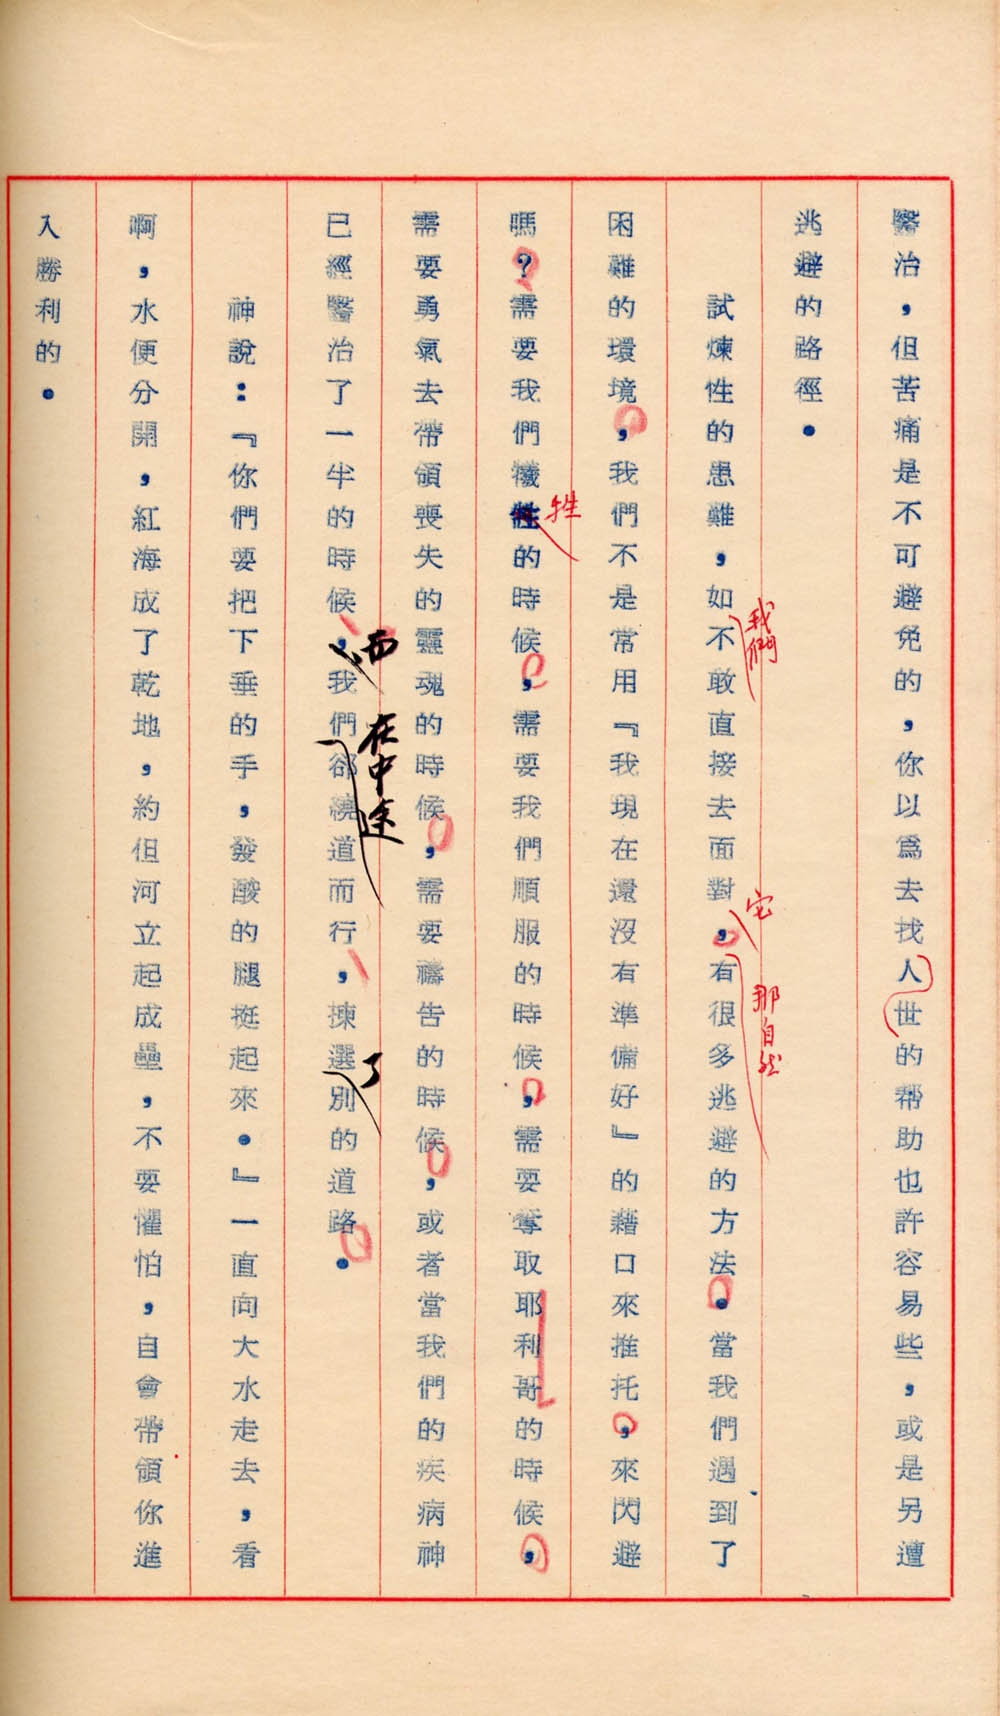 醫治，但苦痛是不可避免的，你以爲去找人世的幫助也許容易些，或是另遭
逃避的路徑。
試煉性的患難，如不敢直接去面對，有很多逃避的方法。當我們遇到了
我們
宅
那自然
困難的環境，我們不是常用『我現在還沒有準備好』的藉口來推托，來閃避
嗎？需要我們犧牲的時候，需要我們順服的時候，需要奪取耶利哥的時候，
牲
需要勇氣去帶領喪失的靈魂的時候，需要禱告的時候，或者當我們的疾病神
已經醫治了一半的時候，我們卻繞道而行，揀選別的道路。
而
在中途
了
神說：『你們要把下垂的手，發酸的腿挺起來。』一直向大水走去，看
啊，水便分開，紅海成了乾地，約但河立起成壘，不要懼怕，自會帶領你進
入勝利的。